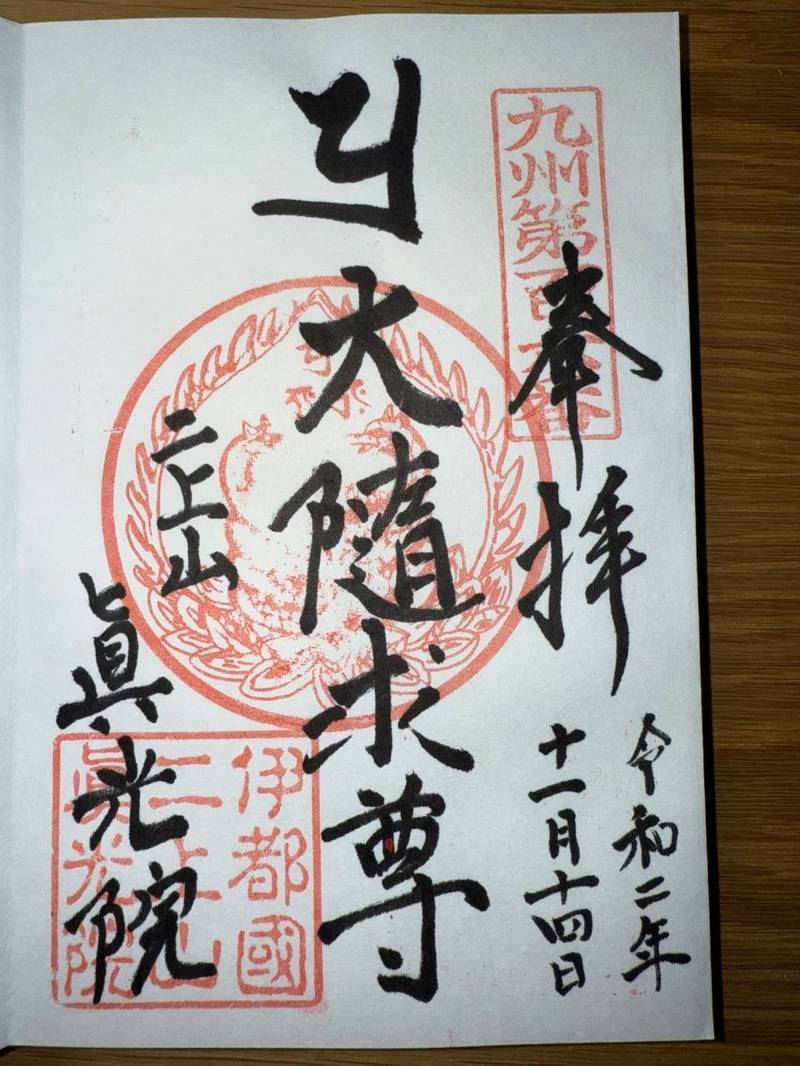 九州第百
番
奉拝
令和二年
十一月十四日
大随求尊
二上山
眞光院
伊都國
二上山
眞光院